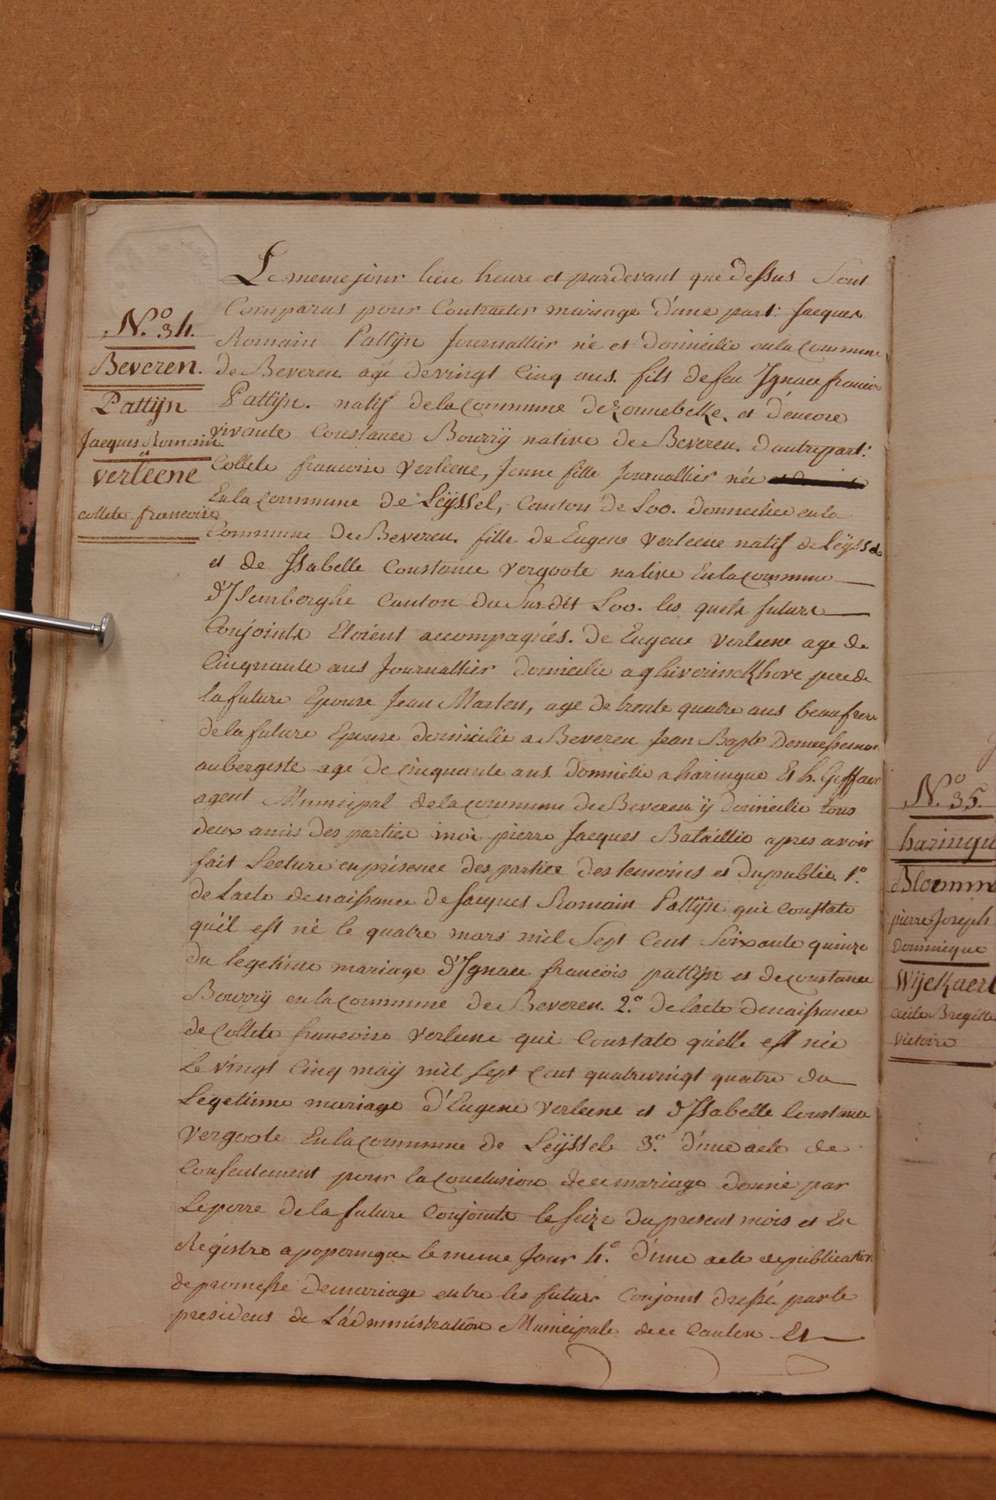 Le meme jour lieu heure et pardevant que dessus Sont
Comparus pour Contracter mariage d'une part: Jacques
Romain Pattijn Journallier né et domicilie enla Commune
de Beveren agé devingt Cinq ans. fils de feu Ignace francois
Pattijn. natif dela Commune de Zonnebeke, et d'encore
vivante Constance Bourrij native de Beveren. d'autre part:
Collete francoise verleene, Jeune fille Journallier née
En la Commune de Leijssel, Canton de Loo. domiciliee en la
Commune de Beveren. fille de Eugene verleene natif de Leijssel
et de Isabelle Constance vergoote native En la Commune
d'Isemberghe Canton du Susdit Loo. les quels future
Conjoints Etoient accompagnés. de Eugene verleene age de
Cinquante ans Journallier domicilie a ghiverinckhove pere de
la future Epouse Jean Marten, age de trente quatre ans beaufrere
de la future Epouse domicilie a Beveren Jean Bapte
aubergiste age de cinquante ans Domicilie a haringue Et h.
agent Municipal de la Commune de Beveren ÿ domicilie tous
deux amis des parties moi pierre Jacques Bataillie apres avoir
fait Lecture en présence des parties des temoins et du publie. 1.o
de Lacte de naissance de Jacques Romain Pattijn qui Constate
qu'il est né le quatre mars mil Sept Cent Soixante quinze
du legetime mariage d'Ignace francois pattijn et de Constance
Bourrij en la Commune de Beveren. 2.o de lacte de naissance
de Collete francoise verleene qui Constate qu'elle est née
Le vingt Cinq maij mil sept cent quatrevingt quatre du
Legetime mariage d'Eugene verleene et d'Isabelle Constance
vergoote En la Commune de Leijssel 3.o d'une acte de
Consentement pour la Conclusion de ce mariage donné par
Le perre de la future Conjointe le seize du present mois et En
Régistre a poperingue le meme Jour 4.o d'une acte de publication
de promesse de mariage entre les futurs Conjoint dressé par le
president de L'administration Municipale de ce Canton Et
N.o 34.
Beveren.
Pattijn
Jacques Romain
verleene
collete francoise
N.o 35.
haringu
pierre Joseph
Dominique
Wijckaert
Cecile Bregitte
victoire